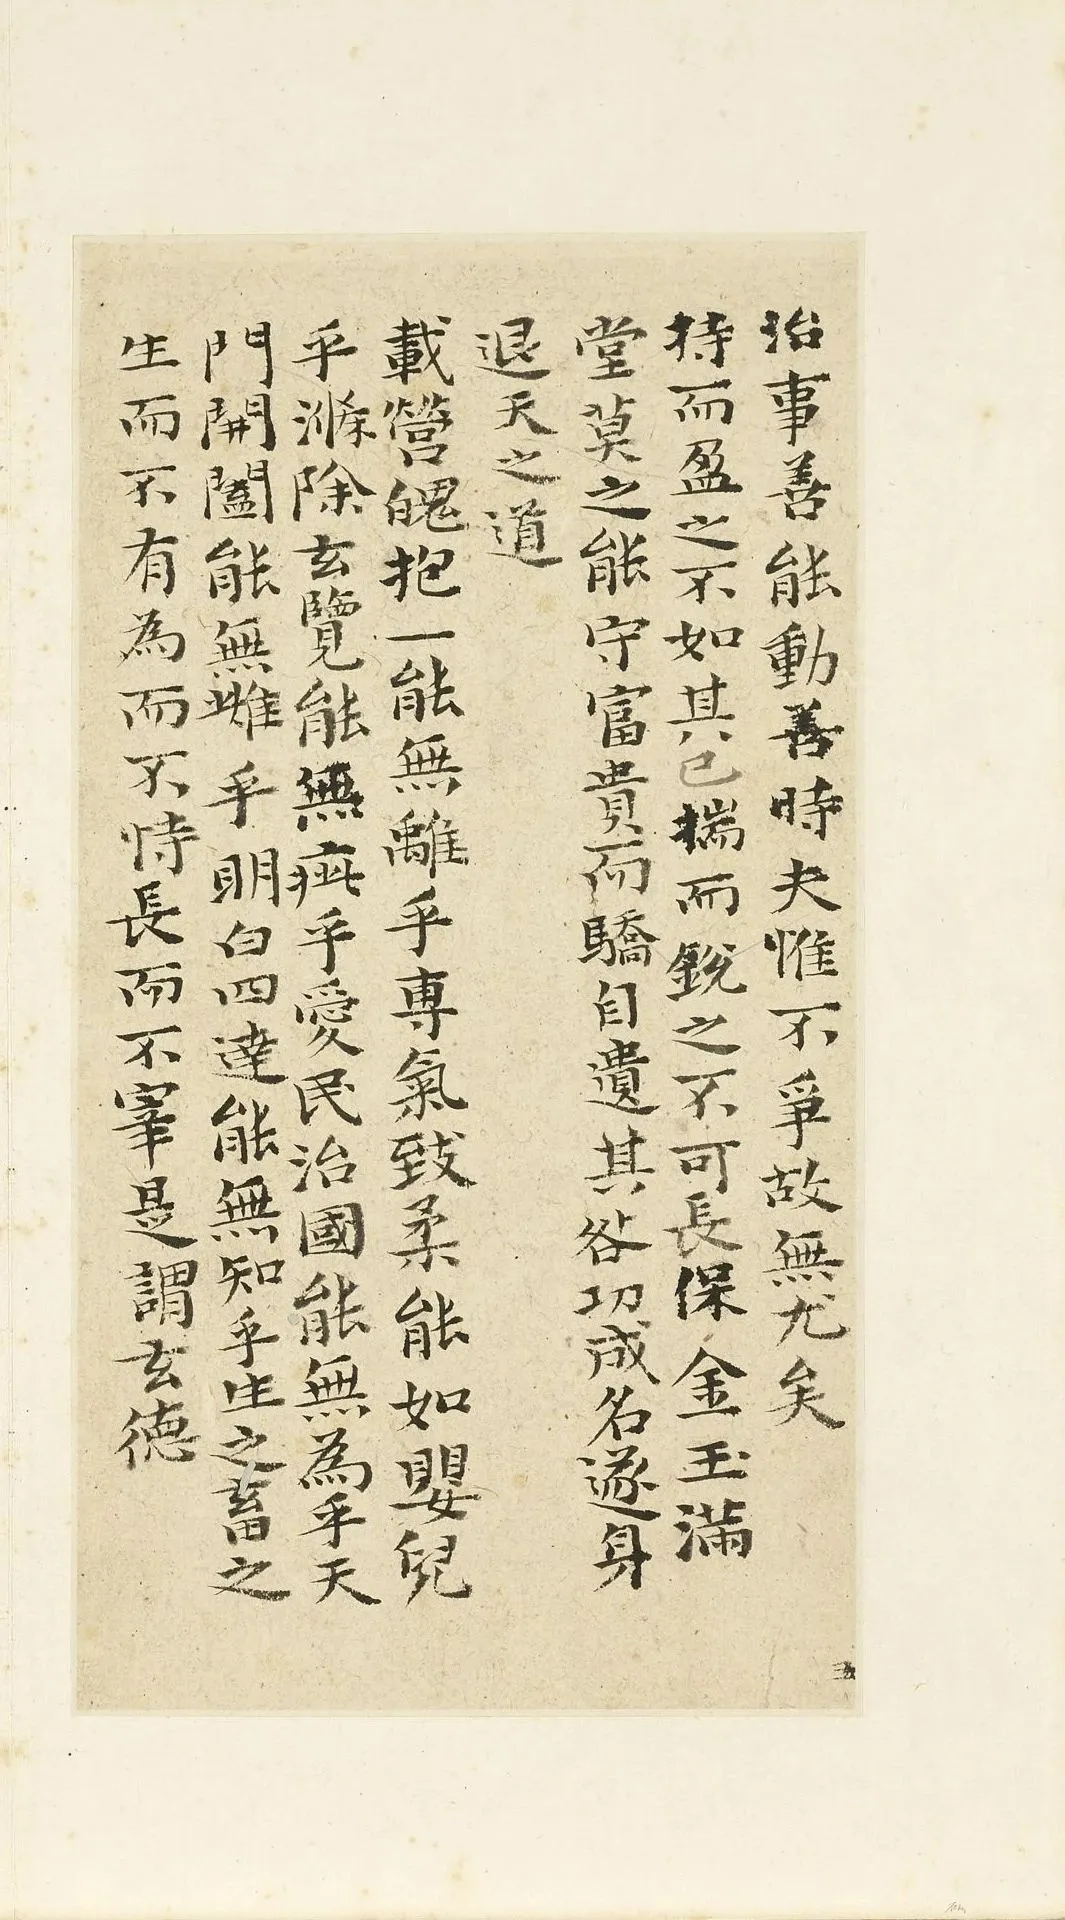 治事善能動善時夫惟不爭故無尤矣
持而盈之不如其已揣而銳之不可長保金玉滿
堂莫之能守富貴而驕自遺其咎功成名遂身
退天之道
載營魄抱一能無離乎專氣致柔能如嬰兒
乎滌除玄覽能無疵乎愛民治國能無為乎天
門開闔能無雌乎明白四達能無知乎生之畜之
生而不有為而不恃長而不宰是謂玄德